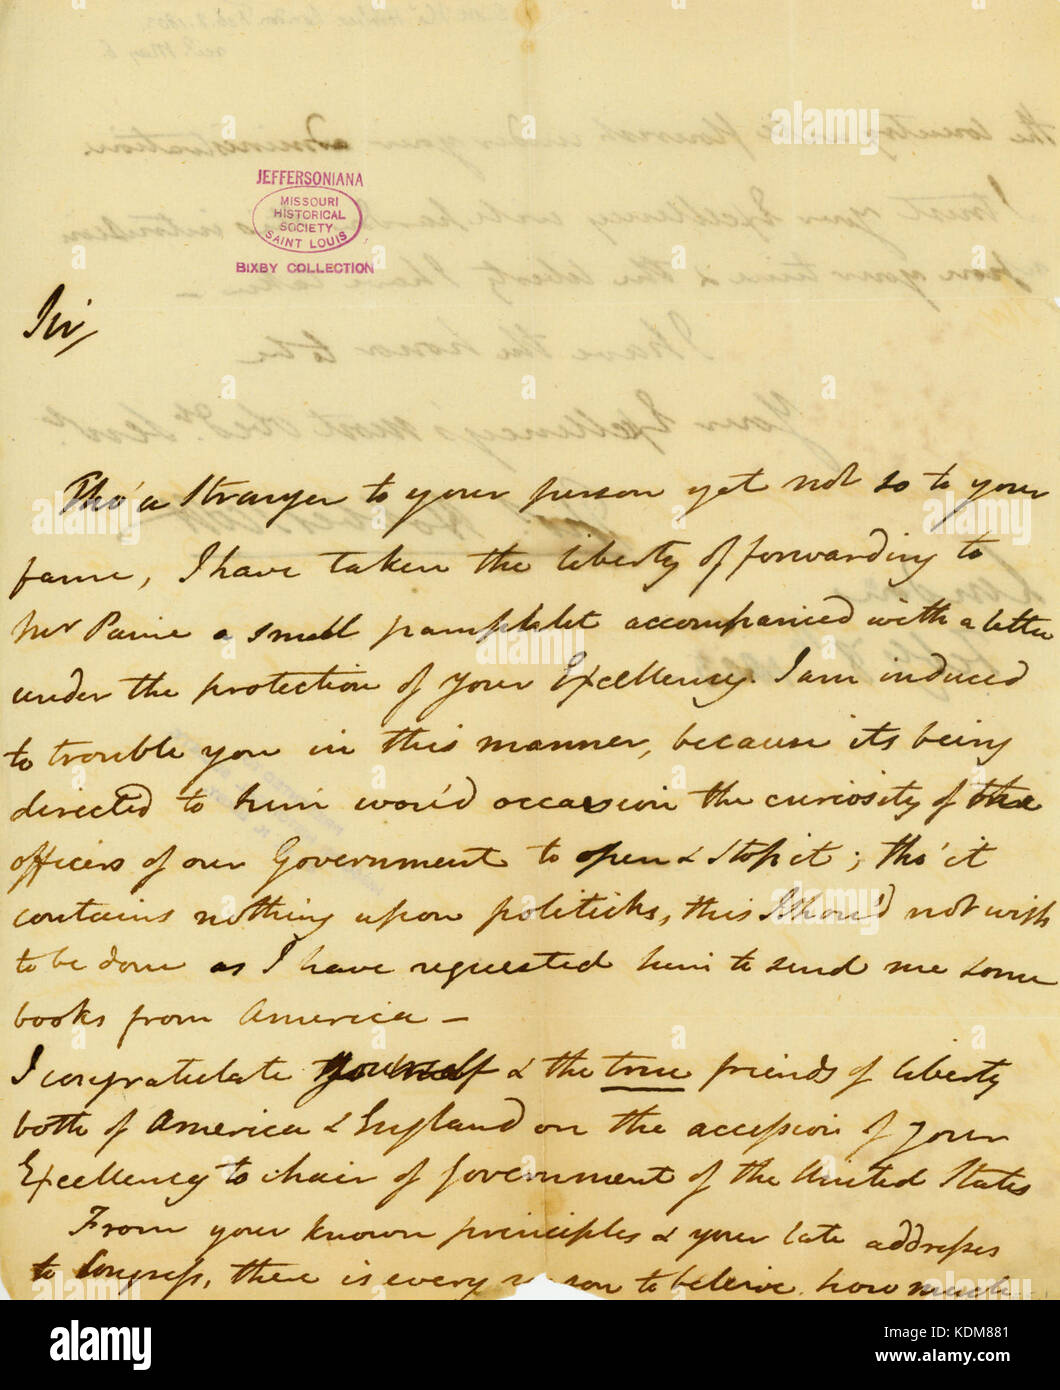 JEFFERSONIANA
MISSOURI
HISTORICAL
SOCIETY
SAINT LOUIS
BIXBY COLLECTION
Sir,
Tho' a Stranger to your person yet not so to your
fame, I have taken the liberty of forwarding to
Mr Paine a small pamphlet accompanied with a letter
under the protection of your Excellency. I am induced
to trouble you in this manner, because its being
directed to him wou'd occasion the curiosity of the
officers of our Government to open & stop it; tho' it
contains nothing upon politicks, this I shou'd not wish
to be done as I have requested him to send me some
books from America —
I congratulate yourself & the true friends of liberty
both of America & England on the accession of your
Excellency to chair of Government of the United States
From your known principles & your late addresses
to Congress, there is every reason to beleive how much
the country will flourish under your administration.
I trust your Excellency will intrusion
upon your time & the liberty I have taken —
I have the honor to be
Your Excellency's most Obedt. Servt.
London
alamy
Image ID: KDM881
www.alamy.com